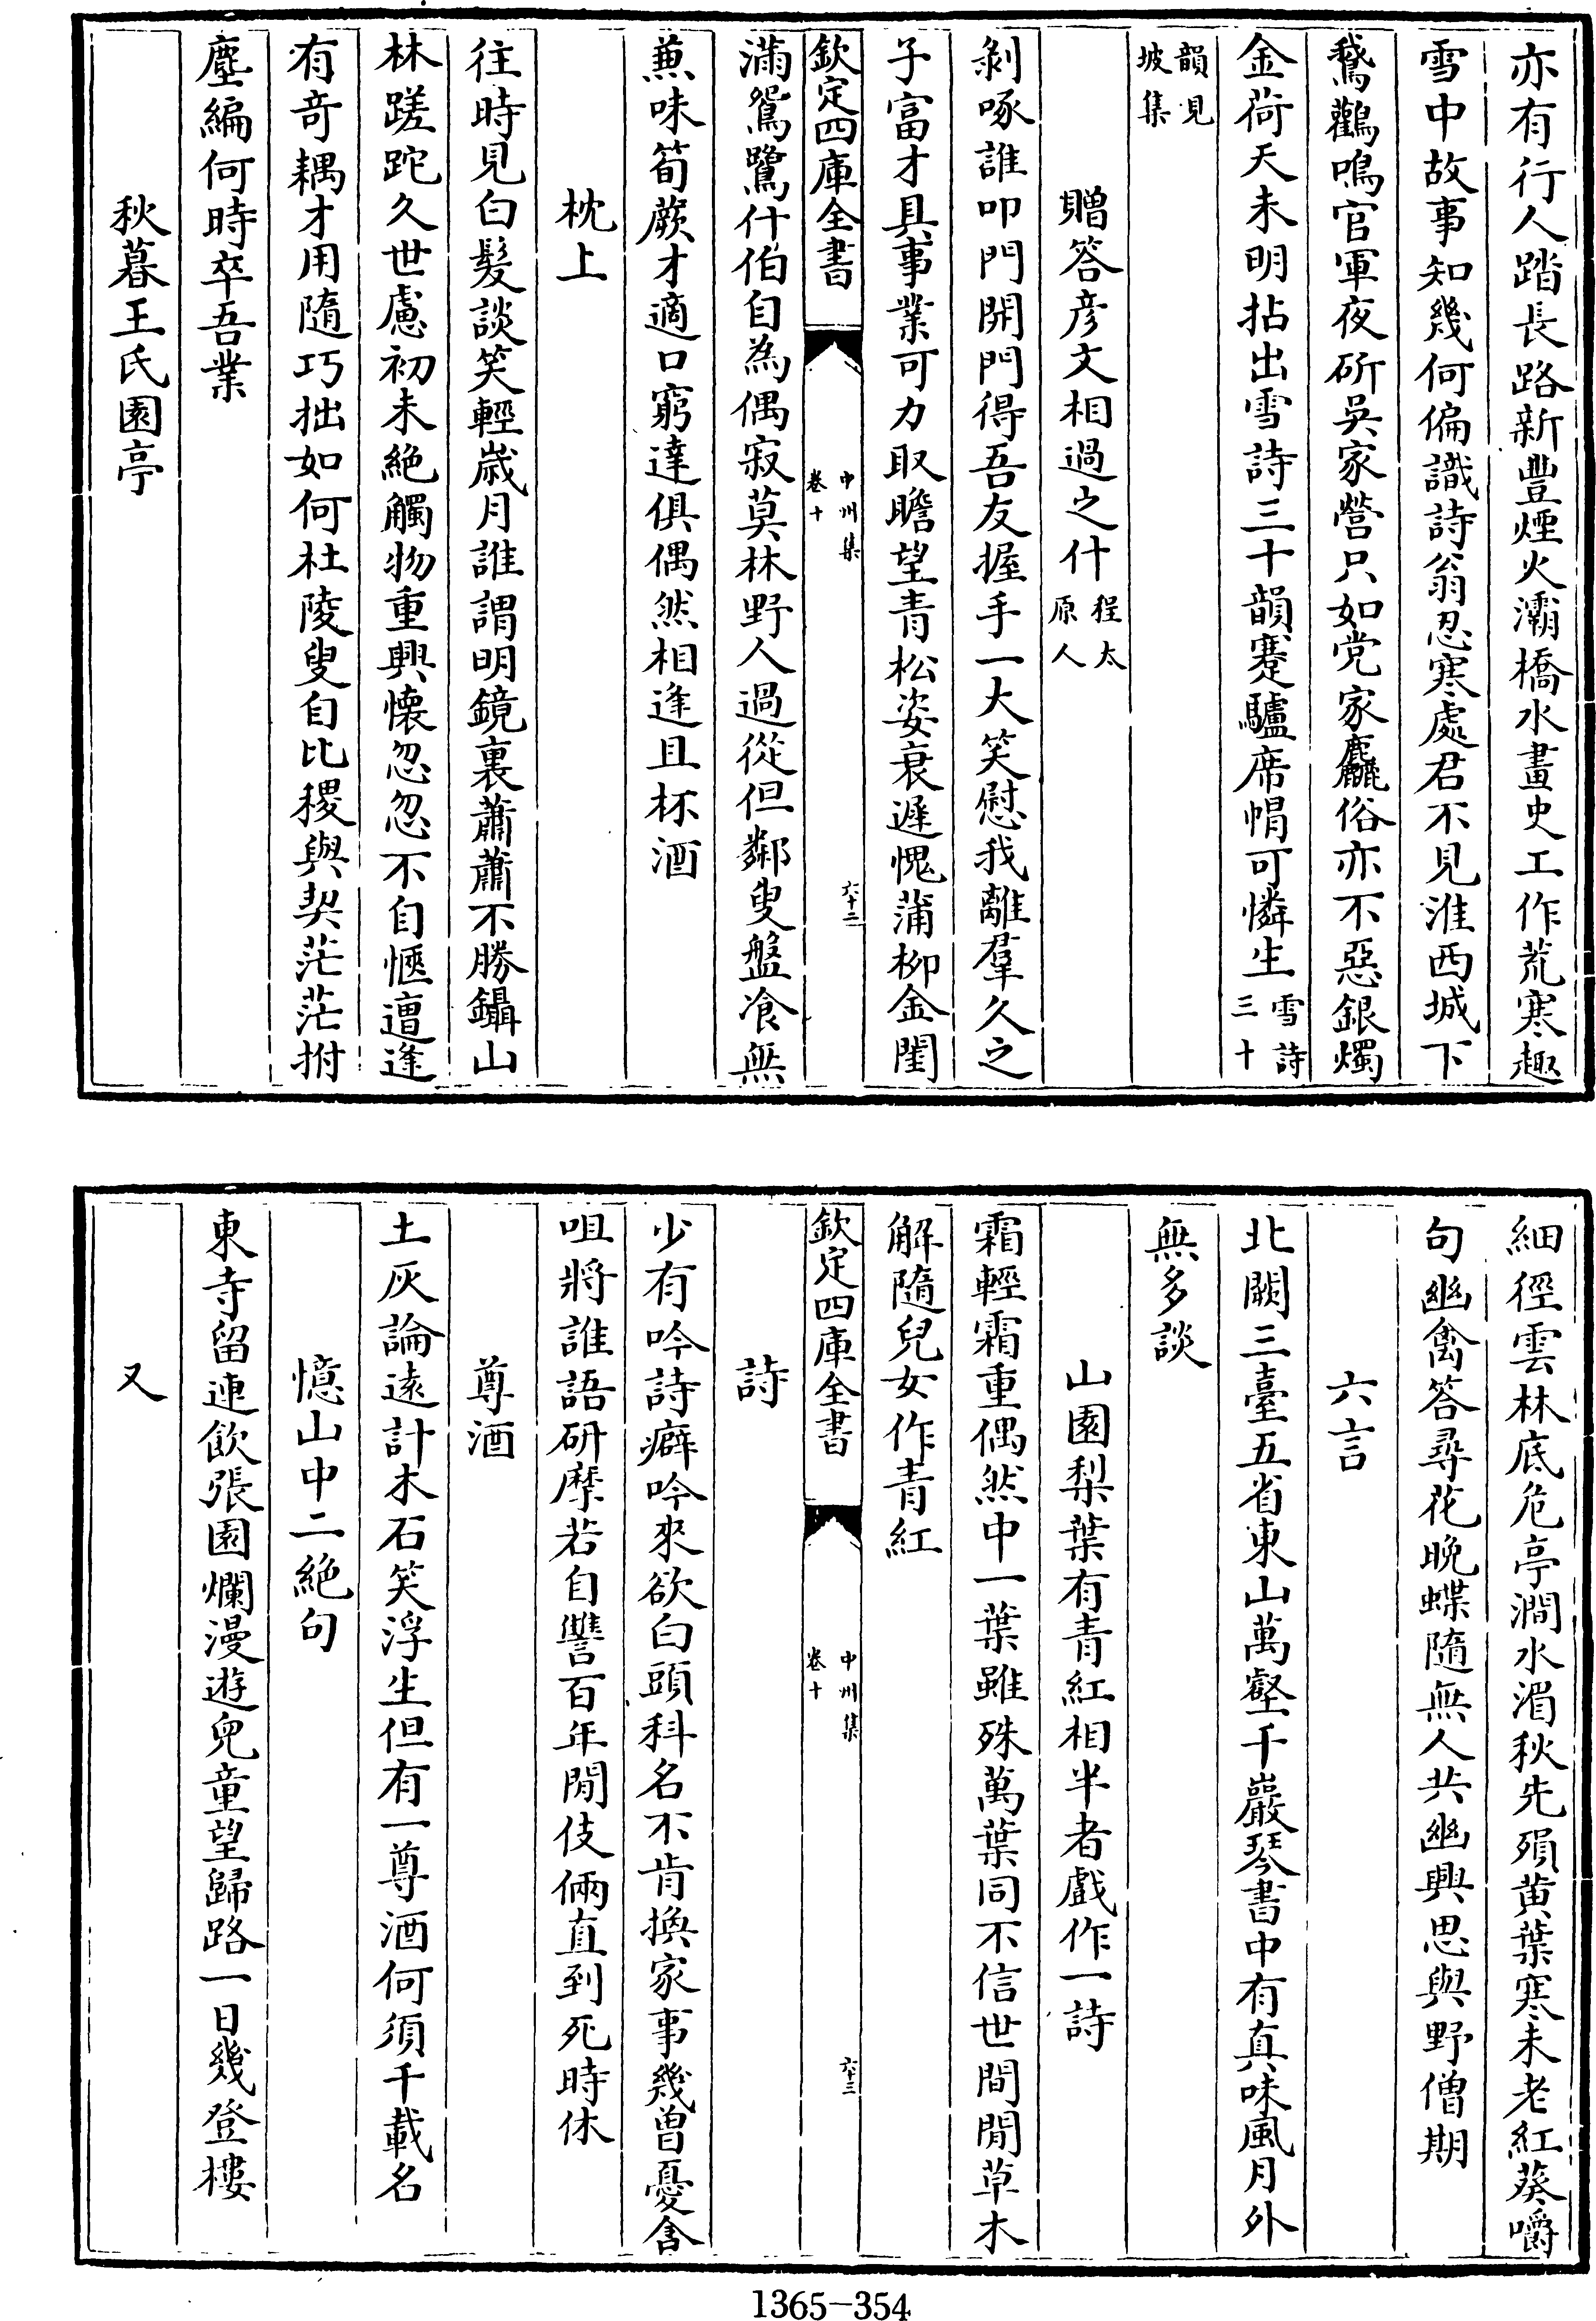 亦有行人踏長路新豐煙火灞橋水畫史工作荒寒趣
雪中故事知幾何偏識詩翁忍寒處君不見淮西城下
鵞鸛鳴官軍夜斫吳家營只如党家麤俗亦不惡銀燭
金荷天未明拈出雪詩三十韻蹇驢席帽可憐生雪詩三十
韻見坡集
贈答彦文相過之什程太原人
剝啄誰叩門開門得吾友握手一大笑慰我離羣久之
子富才具事業可力取瞻望青松姿衰遲愧蒲柳金閨
欽定四庫全書
中州集
卷十
六十二
滿鴛鷺什伯自為偶寂莫林野人過從但鄰叟盤飡無
蒹味筍蕨才適口窮達俱偶然相逢且杯酒
枕上
往時見白髮談笑輕歲月誰謂明鏡裏蕭蕭不勝鑷山
林蹉跎久世慮初未絶觸物重興懷忽忽不自愜遭逢
有竒耦才用隨巧拙如何杜陵叟自比稷與契茫茫拊
塵編何時卒吾業
秋暮王氏園亭
細徑雲林底危亭澗水湄秋先殞黄葉寒未老紅葵嚼
句幽禽答尋花晩蝶隨無人共幽興思與野僧期
六言
北闕三臺五省東山萬壑千巖琴書中有真味風月外
無多談
山園梨葉有青紅相半者戲作一詩
霜輕霜重偶然中一葉雖殊萬葉同不信世間閒草木
解隨兒女作青紅
欽定四庫全書
中州集
卷十
六十三
詩
少有吟詩癖吟來欲白頭科名不肯換家事幾曽憂含
咀將誰語研摩若自讐百年閒伎倆直到死時休
尊酒
土灰論遠計木石笑浮生但有一尊酒何須千載名
憶山中二絶句
東寺留連飲張園爛漫遊兒童望歸路一日幾登樓
又
1365-354